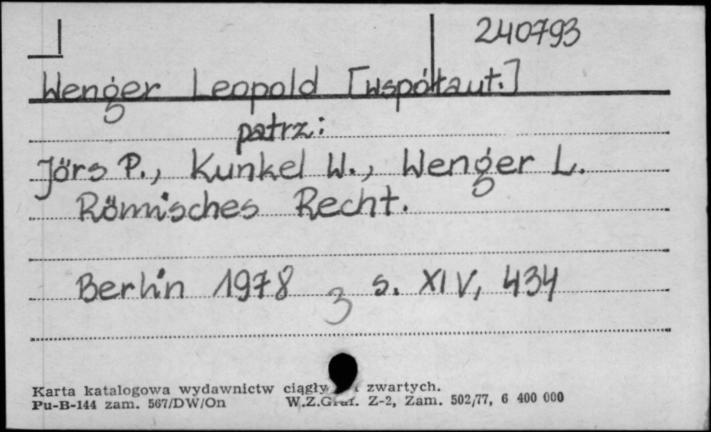 240793
Wenger Leopold [współaut.]
patrz:
Jörs P., Kunkel W., Wenger L.
Römisches Recht.
Berlin 1978 s. XIV, 434
3
Karta katalogowa wydawnictw zwartych.
Pu-B-144 zam. 567/DW/On W.Z.Graf. Z-2, Zam. 502/77, 6 400 000